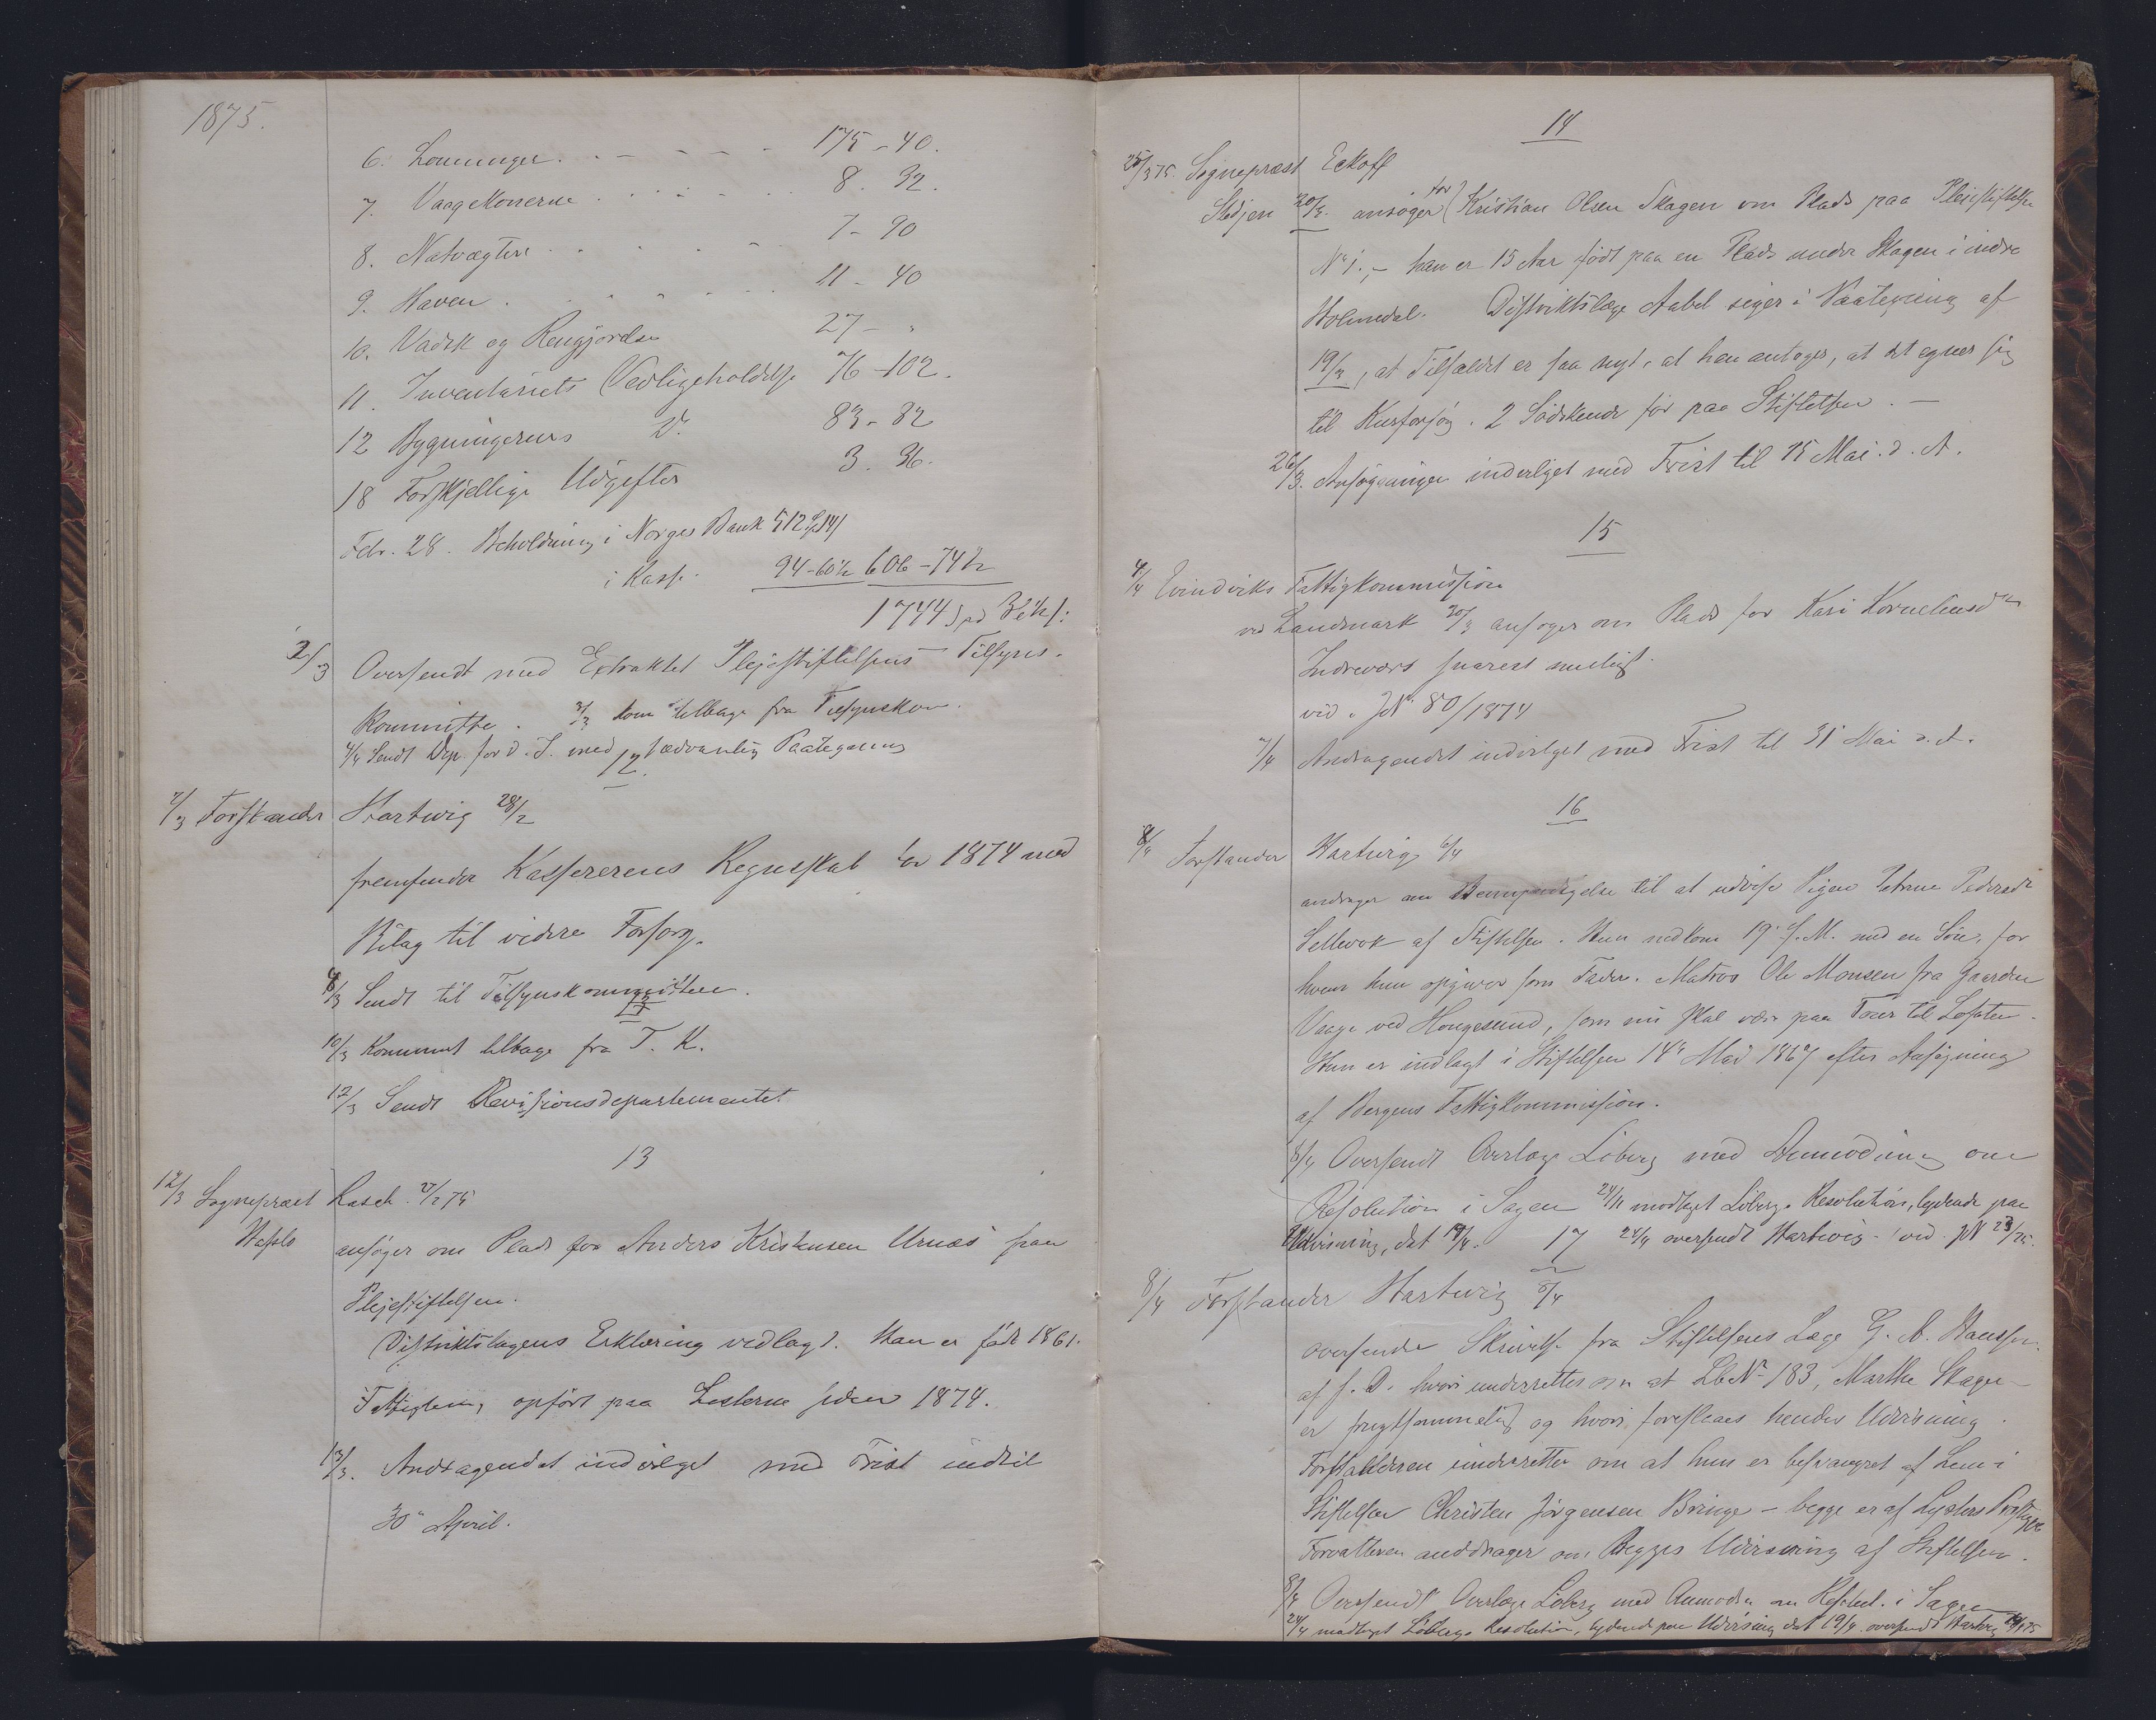 1875.
6. Lønninger. 175 - 40.
7. Vaagekonerne 8. 32.
8. Natvægtere 7 - 90
9. Haven. 11 - 40
10. Vadsk og Rengjørelse 27 - "
11. Inventariets Vedligeholdelse 76 - 102.
12 Bygningernes Do. 83 - 82
18 Forskjellige Udgifter 3. 36.
Febr. 28. Beholdning i Norges Bank 512 14
i Kasse. 94 - 60 606 - 74
1744
2/3 Oversendt med Extraktet Plejestiftelsens Tilsyns-
Kommitte. 3/3 kom tilbage fra Tilsynskom.
4/4 Sendt Dep. for d. I. med sædvanlig Paategning
12.
2/3 Forstander Hartwig 28/2
fremsender Kassererens Regnskab for 1874 med
Bilag til videre Forsorg.
4/3 Sendt til Tilsynskommitteen.
10/3 Kommet tilbage fra T. K.
12/3 Sendt Revisionsdepartementet
13
12/3 Sognepræst Rasch 27/2 75
Hafslo ansøger om Plads for Anders Kristensen Urnæs paa
Plejestiftelsen.
Distriktslægens Erklæring vedlagt. Han er født 1861.
Fattiglem, opført paa Listerne siden 1874.
13/3. Andragendet indvilget med Frist indtil
30te April.
14
25/3 75. Sognepræst Eckoff
Stedjen 20/3. ansøger for Kristian Olsen Skagen om Plads paa Pleiestiftelsen
No 1. - han er 15 Aar født paa en Plads under Skagen i indre
Holmedal. Distriktslæge Aabel siger i Paategning af
19/3, at Tilfældet er saa nyt, at han antager, at det egner sig
til Kurforsøg. 2 Sødskende før paa Stiftelsen. -
26/3. Ansøgningen indvilget med Frist til 15 Mai d. A.
15
4/4 Evindviks Fattigkommission
ved Landmark 30/3 ansøger om Plads for Kari Korneliusdtr
Indrevær snarest muligt.
vid. JN. 80/1874
7/4 Andragendet indvilget med Frist til 31 Mai d. A.
16
8/4 Forstander Hartwig 6/4
andrager om Bemyndigelse til at udvise Pigen Petrine Pedersdtr
Sellevok af Stiftelsen. Hun nedkom 19de f. M. med en Søn, for
hvem hun opgiver som Fader. Matros Ole Monsen fra Gaarden
Vaage ved Hougesund, som nu skal være paa Tour til Lofoten.
Hun er indlagt i Stiftelsen 14de Mai 1867 efter Ansøgning
af Bergens Fattigkommission.
8/4 Oversendt Overlæge Løberg med Anmodning om
Resolution i Sagen 24/4 modtaget Løbergs Resolution, lydende paa
Udvisning, dat 19/4. 17 24/4 oversendt Hartwig - vid. JN 23/75.
8/4 Forstander Hartwig 8/4
oversender Skrivelse fra Stiftelsens Læge G. A. Hansen.
af s. D. hvori underrettes om at Lb No 183, Marthe Skagen
er frugtsommelig og hvori foreslaaes hendes Udvisning.
Forstanderen underretter om at hun er besvangret af Lem i
Stiftelsen Christen Jørgensen Bringe - begge er af Lysters Prgj.
Forvalteren anddrager om Begges Udvisning af Stiftelsen.
8/4 Oversendt Overlæge Løberg med Anmodn. om Resolut. i Sagen
24/4 modtaget Løbergs Resolution, lydende paa Udvisning dat 19/4. oversendt Hartwig 24/4 75